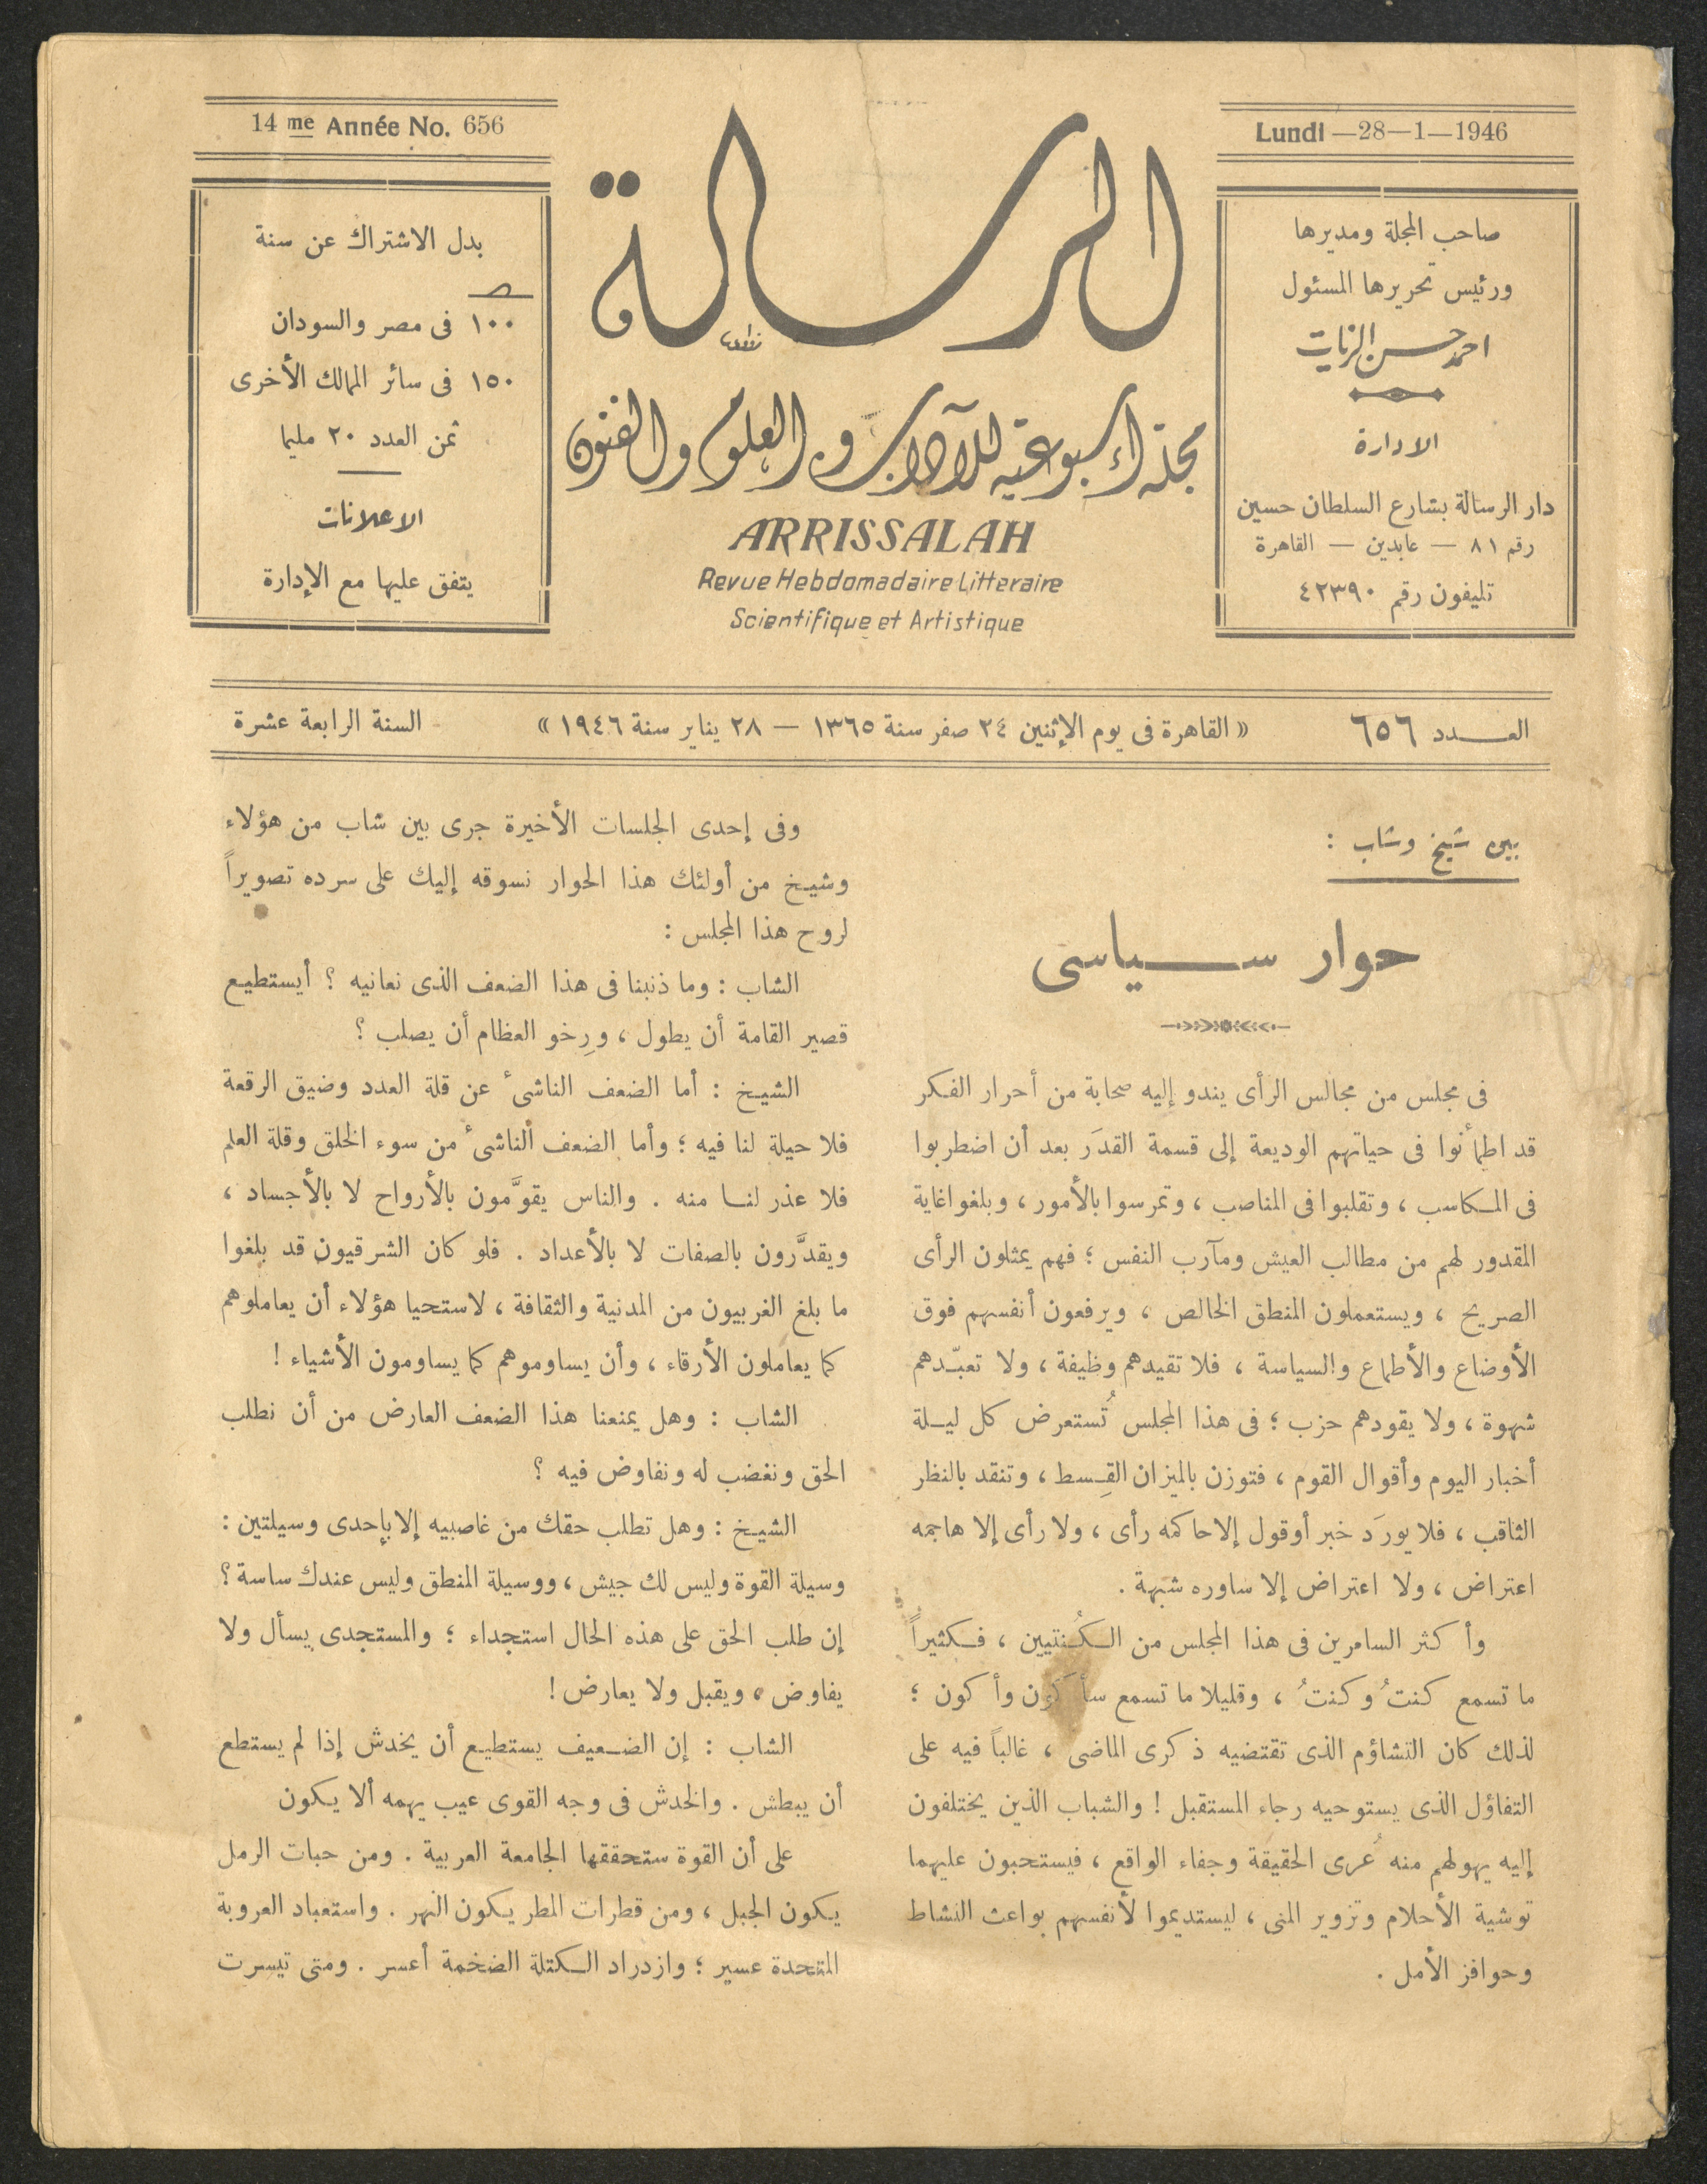 14 me Année No. 656
Lundi —28—1—1946
الرسالة
مجلة أسبوعية للآداب والعلوم والفنون
ARRISSALAH
Revue Hebdomadaire Litteraire
Scientifique et Artistique
صاحب المجلة ومديرها
ورئيس تحريرها المسئول
احمد حسن الزيات
الادارة
دار الرسالة بشارع السلطان حسين
رقم ٨١ — عابدين — القاهرة
تليفون رقم ٤٢٣٩٠
بدل الاشتراك عن سنة
١٠٠ فى مصر والسودان
١٥٠ فى سائر الممالك الأخرى
ثمن العدد ٢٠ مليما
الاعلانات
يتفق عليها مع الإدارة
العـــدد ٦٥٦
« القاهرة فى يوم الإثنين ٢٤ صفر سنة ١٣٦٥ — ٢٨ يناير سنة ١٩٤٦ »
السنة الرابعة عشرة
بين شيخ وشاب :
حوار ســـياسى
فى مجلس من مجالس الرأى يندو إليه صحابة من أحرار الفكر
قد اطمأنوا فى حياتهم الوديعة إلى قسمة القدَر بعد أن اضطربوا
فى المكاسب ، وتقلبوا فى المناصب ، وتمرسوا بالأمور ، وبلغوا غاية
المقدور لهم من مطالب العيش ومآرب النفس ؛ فهم يمثلون الرأى
الصريح ، ويستعملون المنطق الخالص ، ويرفعون أنفسهم فوق
الأوضاع والأطماع والسياسة ، فلا تقيدهم وظيفة ، ولا تعبّدهم
شهوة ، ولا يقودهم حزب ؛ فى هذا المجلس تُستعرض كل ليـلة
أخبار اليوم وأقوال القوم ، فتوزن بالميزان القِسط ، وتنقد بالنظر
الثاقب ، فلا يورَد خبر أو قول إلا حاكمه رأى ، ولا رأى إلا هاجمه
اعتراض ، ولا اعتراض إلا ساوره شبهة .
وأكثر السامرين فى هذا المجلس من الكُنتيين ، فكثيراً
ما تسمع كنتُ وكنتُ ، وقليلا ما تسمع سأكون وأكون ؛
لذلك كان التشاؤم الذى تقتضيه ذكرى الماضى ، غالباً فيه على
التفاؤل الذى يستوحيه رجاء المستقبل ! والشباب الذين يختلفون
إليه يهولهم منه عُرى الحقيقة وجفاء الواقع ، فيستحبون عليهما
توشية الأحلام وتزوير المنى ، ليستديموا لأنفسهم بواعث النشاط
وحوافز الأمل .
وفى إحدى الجلسات الأخيرة جرى بين شاب من هؤلاء
وشيخ من أولئك هذا الحوار نسوقه إليك على سرده تصويراً
لروح هذا المجلس :
الشاب : وما ذنبنا فى هذا الضعف الذى نعانيه ؟ أيستطيع
قصير القامة أن يطول ، ورِخو العظام أن يصلب ؟
الشيخ : أما الضعف الناشىء عن قلة العدد وضيق الرقعة
فلا حيلة لنا فيه ؛ وأما الضعف الناشىء من سوء الخلق وقلة العلم
فلا عذر لنـا منه . والناس يقوَّمون بالأرواح لا بالأجساد ،
ويقدَّرون بالصفات لا بالأعداد . فلو كان الشرقيون قد بلغوا
ما بلغ الغربيون من المدنية والثقافة ، لاستحيا هؤلاء أن يعاملوهم
كما يعاملون الأرقاء ، وأن يساوموهم كما يساومون الأشياء !
الشاب : وهل يمنعنا هذا الضعف العارض من أن نطلب
الحق ونغضب له ونفاوض فيه ؟
الشيخ : وهل تطلب حقك من غاصبيه إلا بإحدى وسيلتين :
وسيلة القوة وليس لك جيش ، ووسيلة المنطق وليس عندك ساسة ؟
إن طلب الحق على هذه الحال استجداء ؛ والمستجدى يسأل ولا
يفاوض ، ويقبل ولا يعارض !
الشاب : إن الضـعيف يستطيع أن يخدش إذا لم يستطع
أن يبطش . والخدش فى وجه القوى عيب يهمه ألا يكون
على أن القوة ستحققها الجامعة العربية . ومن حبات الرمل
يكون الجبل ، ومن قطرات المطر يكون النهر . واستعباد العروبة
المتحدة عسير ؛ وازدراد الكتلة الضخمة أعسر . ومتى تيسرت